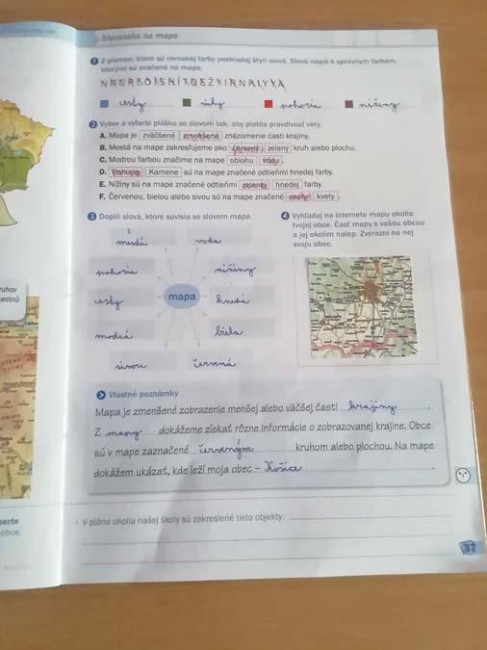 Slovensko na mape
1 Z písmen, ktoré sú rovnakej farby poskladaj štyri slová. Slová napíš k správnym farbám,
ktorými sú značené na mape.
cesty
pohoria
nížiny
2 Vyber a vyfarbi plôšku so slovom tak, aby platila pravdivosť vety.
A. Mapa je zväčšené zmenšené znázornenie časti krajiny.
B. Mestá na mape zakresľujeme ako červený zelený kruh alebo plochu.
C. Modrou farbou značíme na mape oblohu vodu.
D. Pohoria Kamene sú na mape značené odtieňmi hnedej farby.
E. Nížiny sú na mape značené odtieňmi zelenej hnedej farby.
F. Červenou, bielou alebo sivou sú na mape značené cesty kvety.
3 Doplň slová, ktoré súvisia so slovom mapa.
4 Vyhľadaj na internete mapu okolia
tvojej obce. Časť mapy s vašou obcou
a jej okolím nalep. Zvýrazni na nej
svoju obec.
mestá
voda
pohoria
nížiny
cesty
mapa
hnedá
modrá
biela
sivou
červená
Vlastné poznámky
Mapa je zmenšené zobrazenie menšej alebo väčšej časti krajiny
Z mapy dokážeme získať rôzne informácie o zobrazovanej krajine. Obce
sú v mape zaznačené červeným kruhom alebo plochou. Na mape
dokážem ukázať, kde leží moja obec – Košice.
V pláne okolia našej školy sú zakreslené tieto objekty:
obce.
37